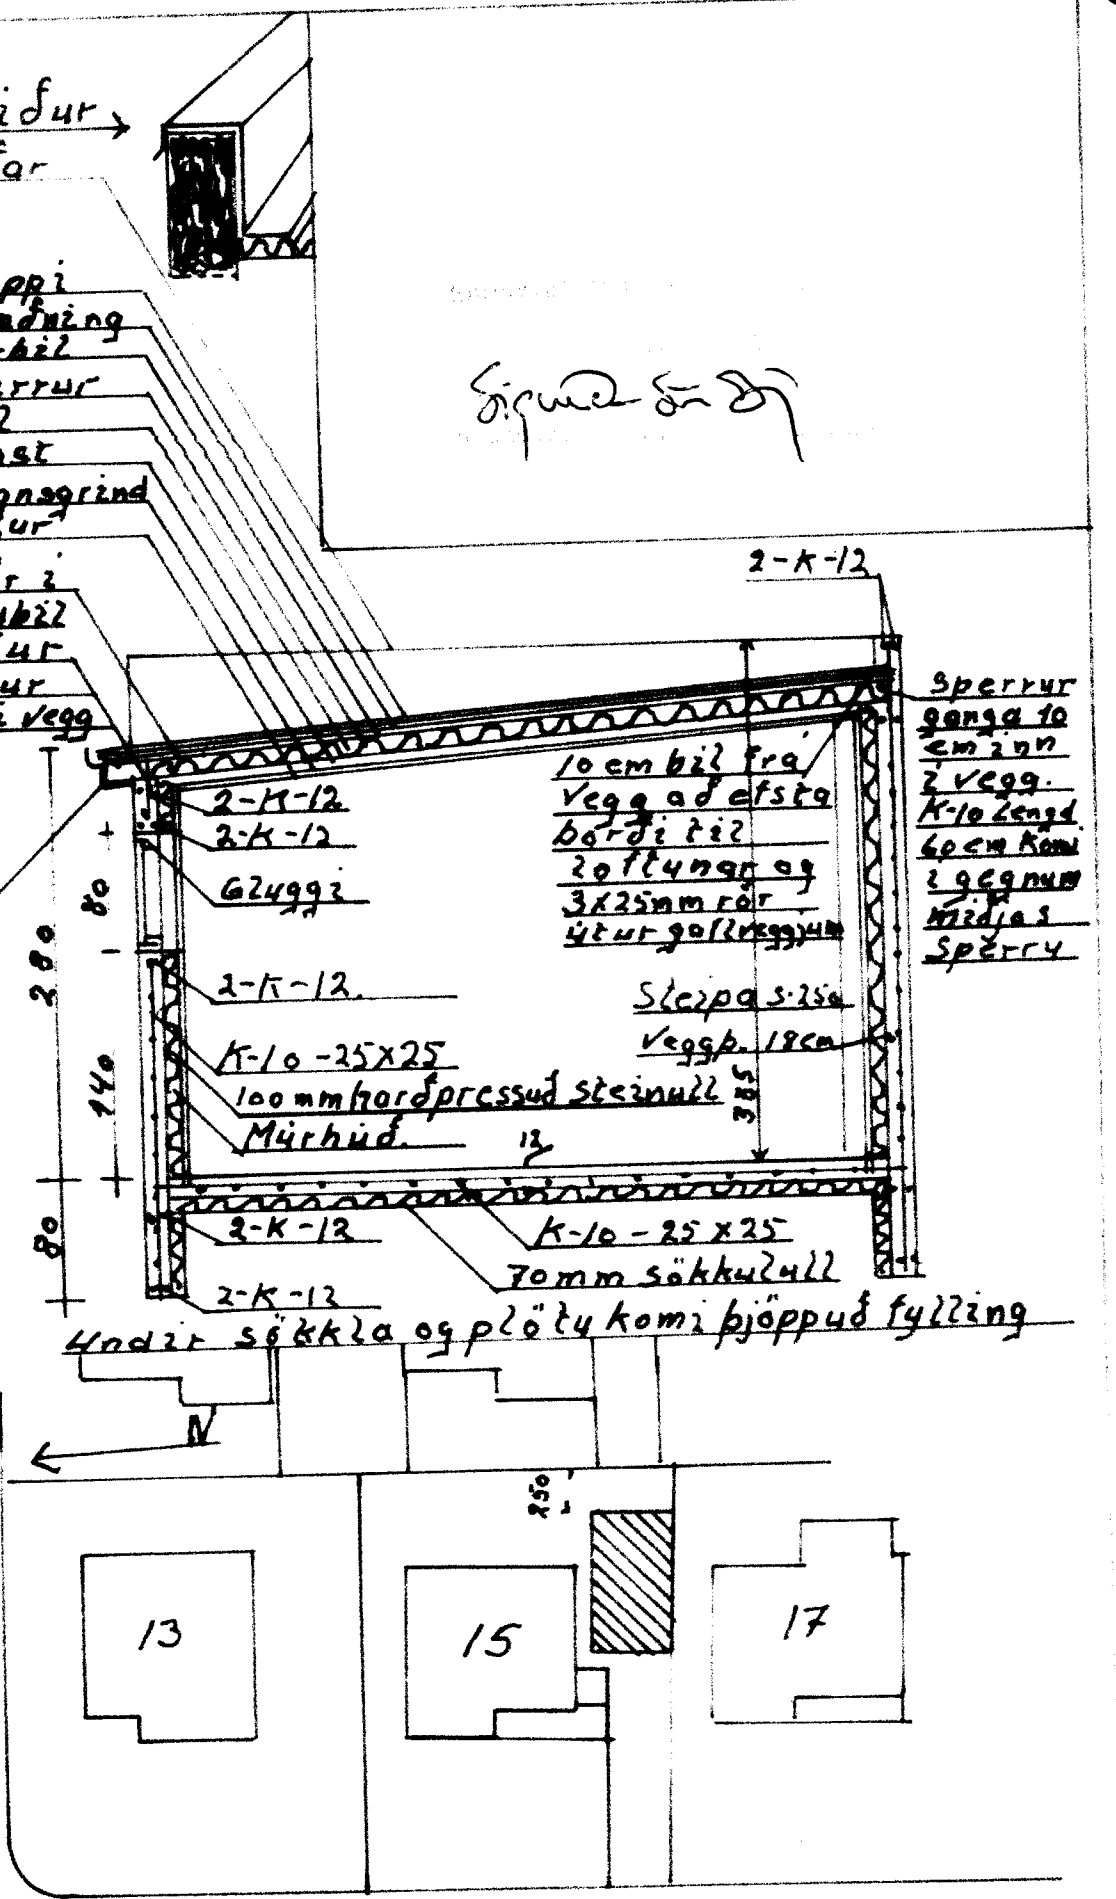 iður
ar
ppi
ndning
bil
errur
2
ást
gnsgrind
ur
r i
bil
ur
ur
í vegg
2-K-12
Sperrur
ganga 10
cm inn
í vegg.
K-10 lengd
60 cm komi
í gegnum
miðja s
sperru
10 cm bil frá
vegg að efsta
borði til
loftunar og
3x25mm rör
út ur gaflveggjum
2-K-12
2-K-12
Gluggi
2-K-12.
Sleipa S-250
Veggþ. 18cm
K-10-25x25
100mm harðpressuð steinull
Múrhúð.
280
80
140
80
385
12
2-K-12
K-10-25x25
70mm sökkulull
2-K-12
Undir sökkla og plötu komi þjöppuð fylling
N
250
13
15
17